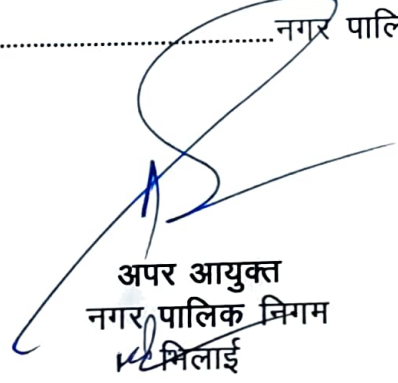 ....................................................नगर पालि
अपर आयुक्त
नगर पालिक निगम
भिलाई